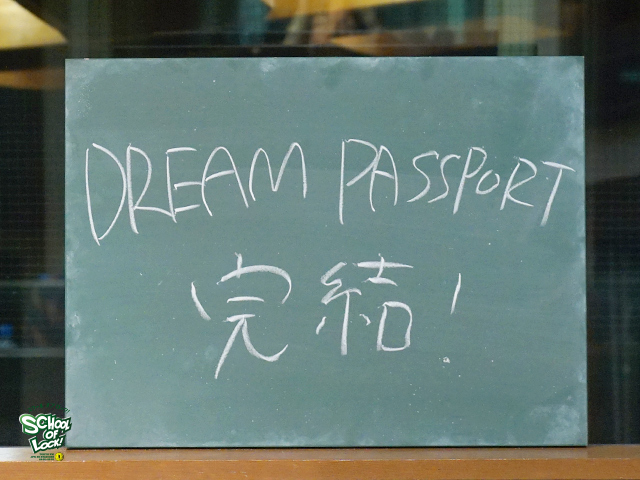 DREAM PASSPORT
完結!
SCHOOL
OF
LOCK!